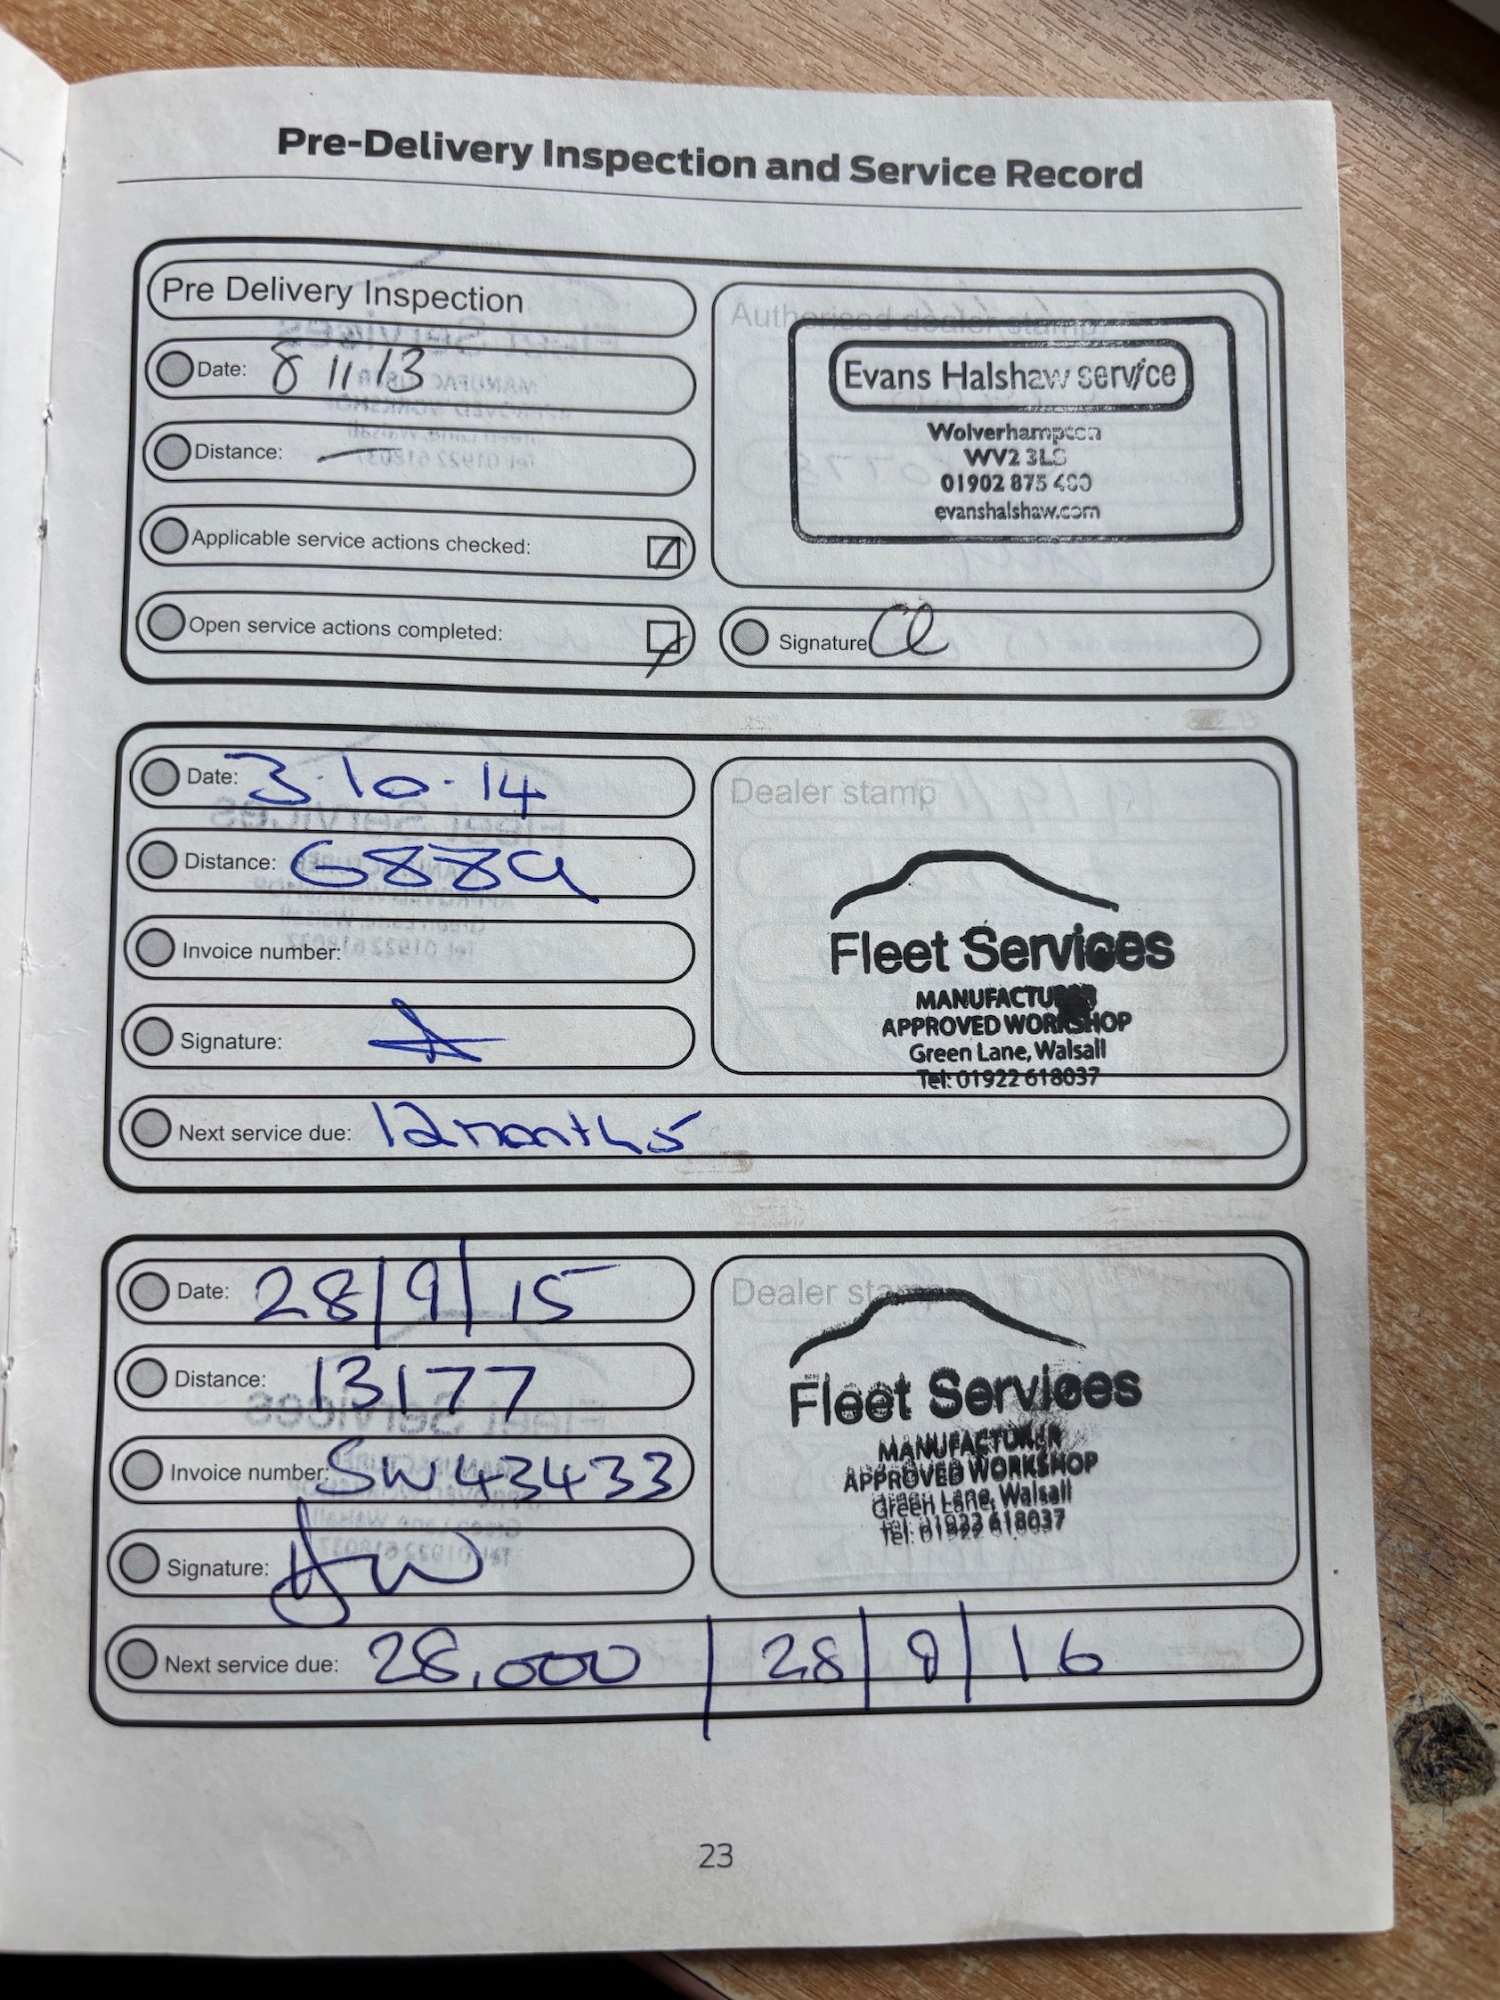 Pre-Delivery Inspection and Service Record
Pre Delivery Inspection
Date: 8 11 13
Distance: —
Applicable service actions checked:
Open service actions completed:
Authorised dealer stamp
Evans Halshaw service
Wolverhampton
WV2 3LG
01902 875 400
evanshalshaw.com
Signature
Date: 3.10.14
Distance: 6889
Invoice number:
Signature:
Dealer stamp
Fleet Services
MANUFACTURER
APPROVED WORKSHOP
Green Lane, Walsall
Tel: 01922 618037
Next service due: 12 months
Date: 28/9/15
Distance: 13177
Invoice number: SW43433
Signature:
Dealer stamp
Fleet Services
MANUFACTURER
APPROVED WORKSHOP
Green Lane, Walsall
Tel: 01922 618037
Next service due: 28,000 / 28/9/16
23